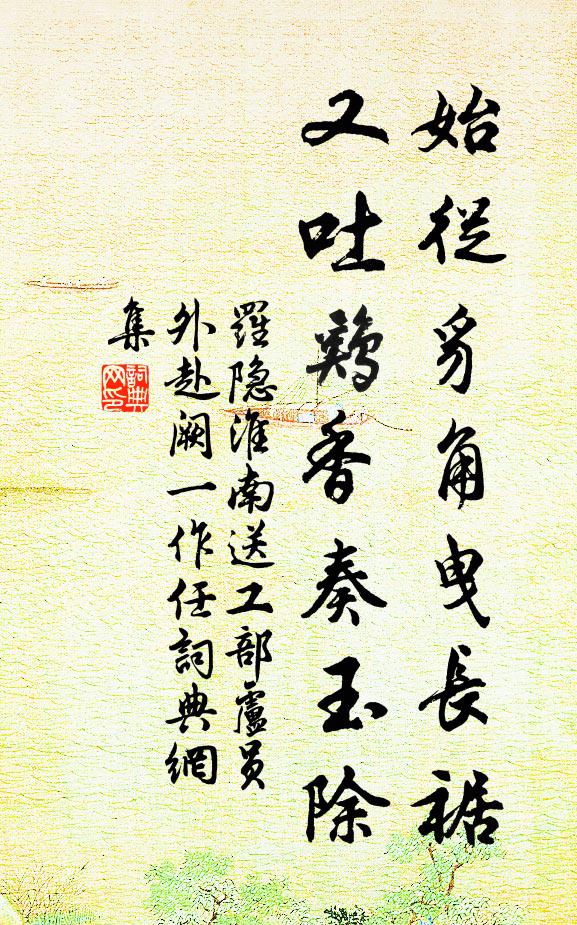 始從豸角曳長裾
又吐鷄香奏玉除
羅隐淮南送工部盧員
外赴阙一作任詞典網
集
詞典
网印